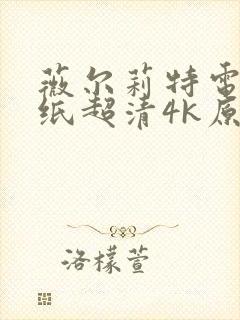 薇尔莉特电
纸超清4K原
洛檬萱